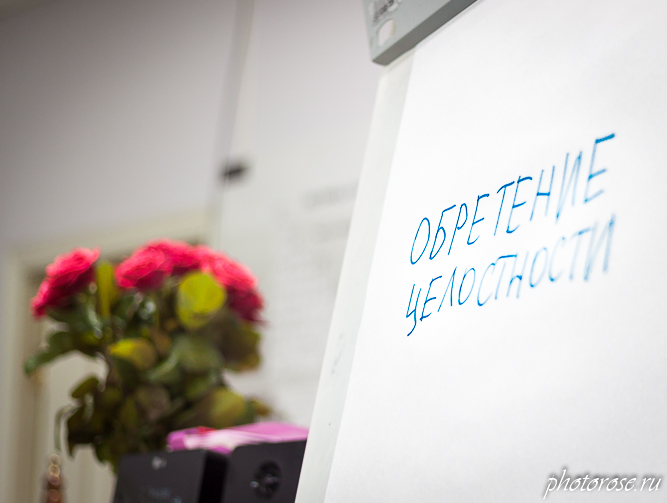 ОБРЕТЕНИЕ
ЦЕЛОСТНОСТИ
photorose.ru